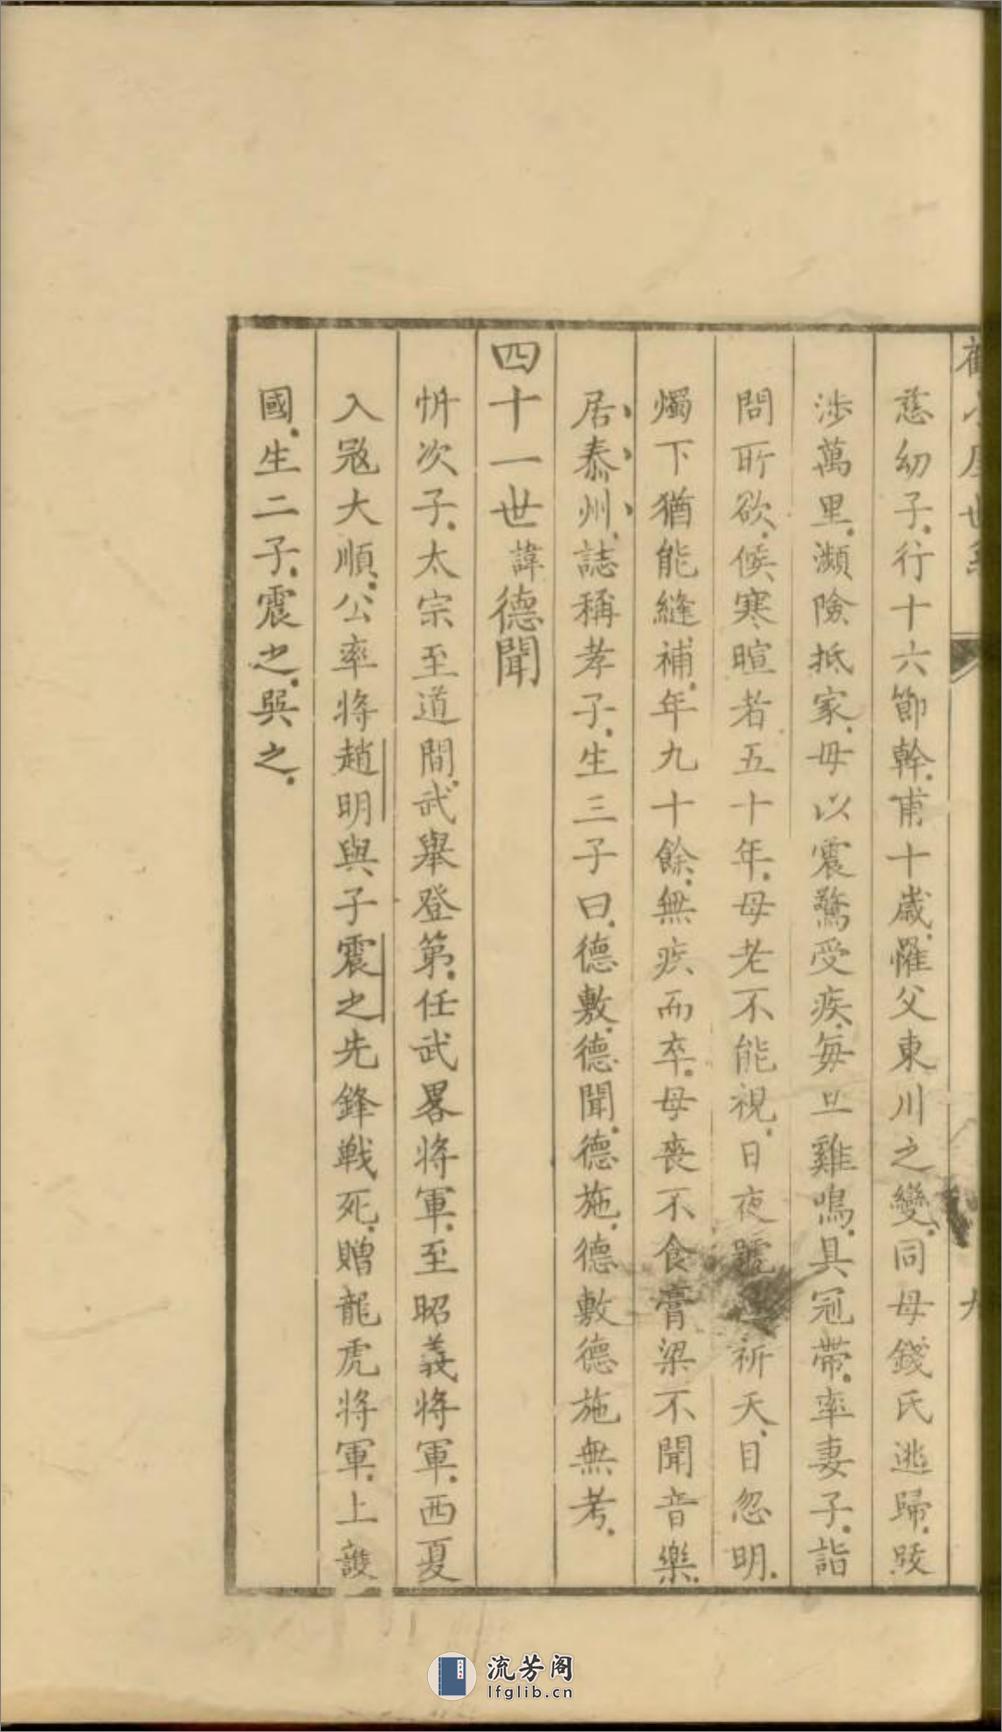 慈幼子行十六節幹甫十歲罹父東川之變同母錢氏逃歸跋
涉萬里瀕險抵家母以震驚受疾每旦雞鳴具冠帶率妻子詣
問所欲候寒暄者五十年母老不能視日夜號祈天目忽明
燭下猶能縫補年九十餘無疾而卒母喪不食膏粱不聞音樂
居泰州誌稱孝子生三子曰德敷德聞德施德敷德施無考
四十一世諱德聞
忻次子太宗至道間武舉登第任武畧將軍至昭義將軍西夏
入寇大順公率將趙明與子震之先鋒戰死贈龍虎將軍上護
國生二子震之巽之
九
流芳阁
lfglib.cn